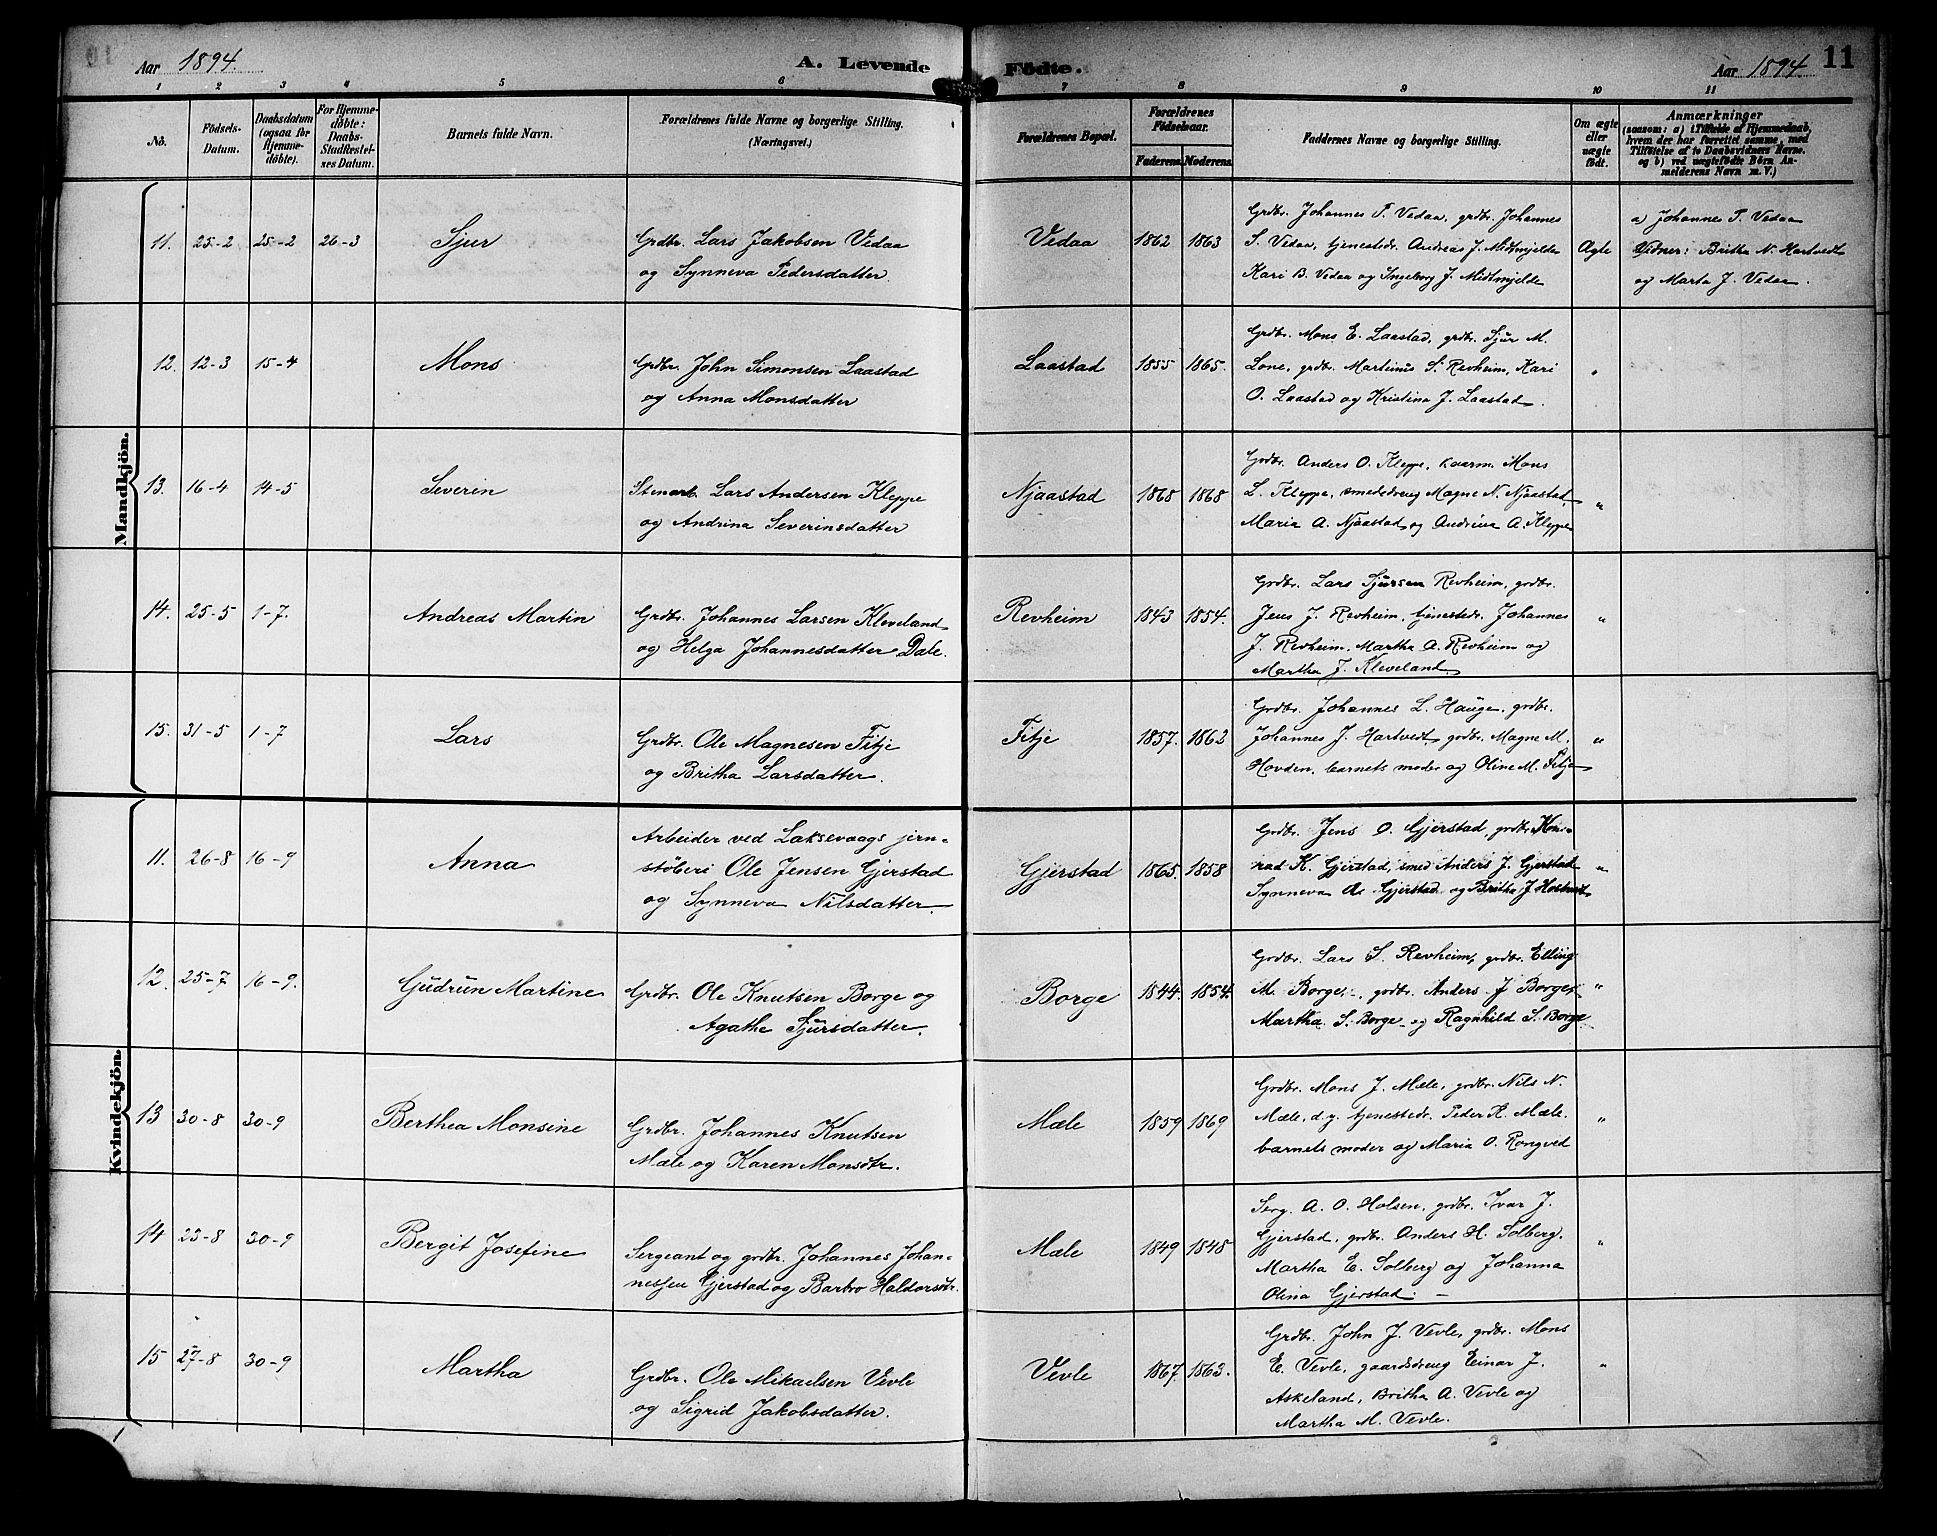 Aar 1894.
A. Levende Födte.
Aar 1894.
11
1 2 3 4 5 6 7 8 9 10 11
No.
Födsels-
Datum.
Daabsdatum
(ogsaa for
Hjemme-
döbte).
For Hjemme-
döbte:
Daabs-
Stadfæstel-
nes Datum.
Barnets fulde Navn.
Forældrenes fulde Navne og borgerlige Stilling.
(Næringsvei.)
Forældrenes Bopæl.
Forældrenes
Födselsaar.
Faderens. Moderens.
Faddernes Navne og borgerlige Stilling.
Om ægte
eller
uægte
födt.
Anmærkninger
(saasom: a) i Tilfælde af Hjemmedaab,
hvem der har forrettet samme, med
Tilföielse af to Daabsvidners Navne.
og b) ved uægtefödte Börn An-
melderens Navn m. V.)
Mandkjön.
11. 25-2 25-2 26-3 Sjur
Grdbr. Lars Jakobsen Vedaa
og Synneva Pedersdatter.
Vedaa 1862 1863
Grdbr. Johannes P. Vedaa, grdbr. Johannes
S. Vedaa, tjenestedr. Andreas J. Midtmjelde
Kari B. Vedaa og Ingeborg J. Midtmjelde
Ægte
a) Johannes P. Vedaa
Vidner: Britha N. Hartvedt
og Marta J. Vedaa.
12. 12-3 15-4 Mons
Grdbr. John Simonsen Laastad
og Anna Monsdatter
Laastad 1855 1865.
Grdbr. Mons E. Laastad, grdbr. Sjur M.
Lone, grdbr. Martinus S. Revheim, Kari
O. Laastad og Kristina J. Laastad.
"
13. 16-4 14-5 Severin
Stenarb. Lars Andersen Kleppe
og Andrina Severinsdatter
Njaastad 1868 1868
Grdbr. Anders O. Kleppe, kaarm. Mons
L. Kleppe, smededreng Magne N. Njaastad,
Maria A. Njaastad og Andrina A. Kleppe
"
14. 25-5 1-7. Andreas Martin
Grdbr. Johannes Larsen Kleveland
og Helga Johannesdatter Dale.
Revheim 1843 1854.
Grdbr. Lars Sjursen Revheim, grdbr.
Jens J. Revheim, tjenestedr. Johannes
J. Revheim, Martha A. Revheim og
Martha J. Kleveland.
"
15. 31-5 1-7 Lars
Grdbr. Ole Magnesen Fitje
og Britha Larsdatter.
Fitje 1857. 1862
Grdbr. Johannes L. Hauge, grdbr.
Johannes J. Hartvedt, grdbr. Magne M.
Hovden, barnets moder og Oline M. Fitje
"
Kvindekjön.
11. 26-8 16-9 Anna
Arbeider ved Laksevaags jern-
støberi Ole Jensen Gjerstad
og Synneva Nilsdatter.
Gjerstad 1865. 1858
Grdbr. Jens O. Gjerstad, grdbr. Kon-
rad K. Gjerstad, smed Anders J. Gjerstad
Synneva A. Gjerstad og Britha J.
"
12. 25-7 16-9. Gudrun Martine
Grdbr. Ole Knutsen Borge og
Agathe Sjursdatter.
Borge 1844. 1854.
Grdbr. Lars S. Revheim, grdbr. Elling
M. Borge, grdbr. Anders J Borge,
Martha S. Borge og Ragnhild S. Borge
"
13 30-8 30-9 Berthea Monsine
Grdbr. Johannes Knutsen
Mæle og Karen Monsdtr.
Mæle 1859 1869
Grdbr. Mons J. Mæle, grdbr. Nils N.
Mæle, d.y. tjenestedr. Peder K. Mæle.
barnets moder og Maria O. Rongved
"
14 23-8 30-9 Bergit Josefine
Sergeant og grdbr. Johannes Johan-
nessen Gjerstad og Barbro Haldorsdtr.
Mæle 1849 1848
Serg. A. O. Holsen, grdbr. Ivar J.
Gjerstad, grdbr. Anders H. Solberg.
Martha E. Solberg og Johanna
Olina Gjerstad. -
"
15 27-8 30-9 Martha
Grdbr. Ole Mikaelsen Vevle
og Sigrid Jakobsdatter.
Vevle 1867 1863.
Grdbr. John J. Vevle, grdbr. Mons
E. Vevle, gaardsdreng Einar J.
Askeland, Britha A. Vevle og
Martha M. Vevle.
"